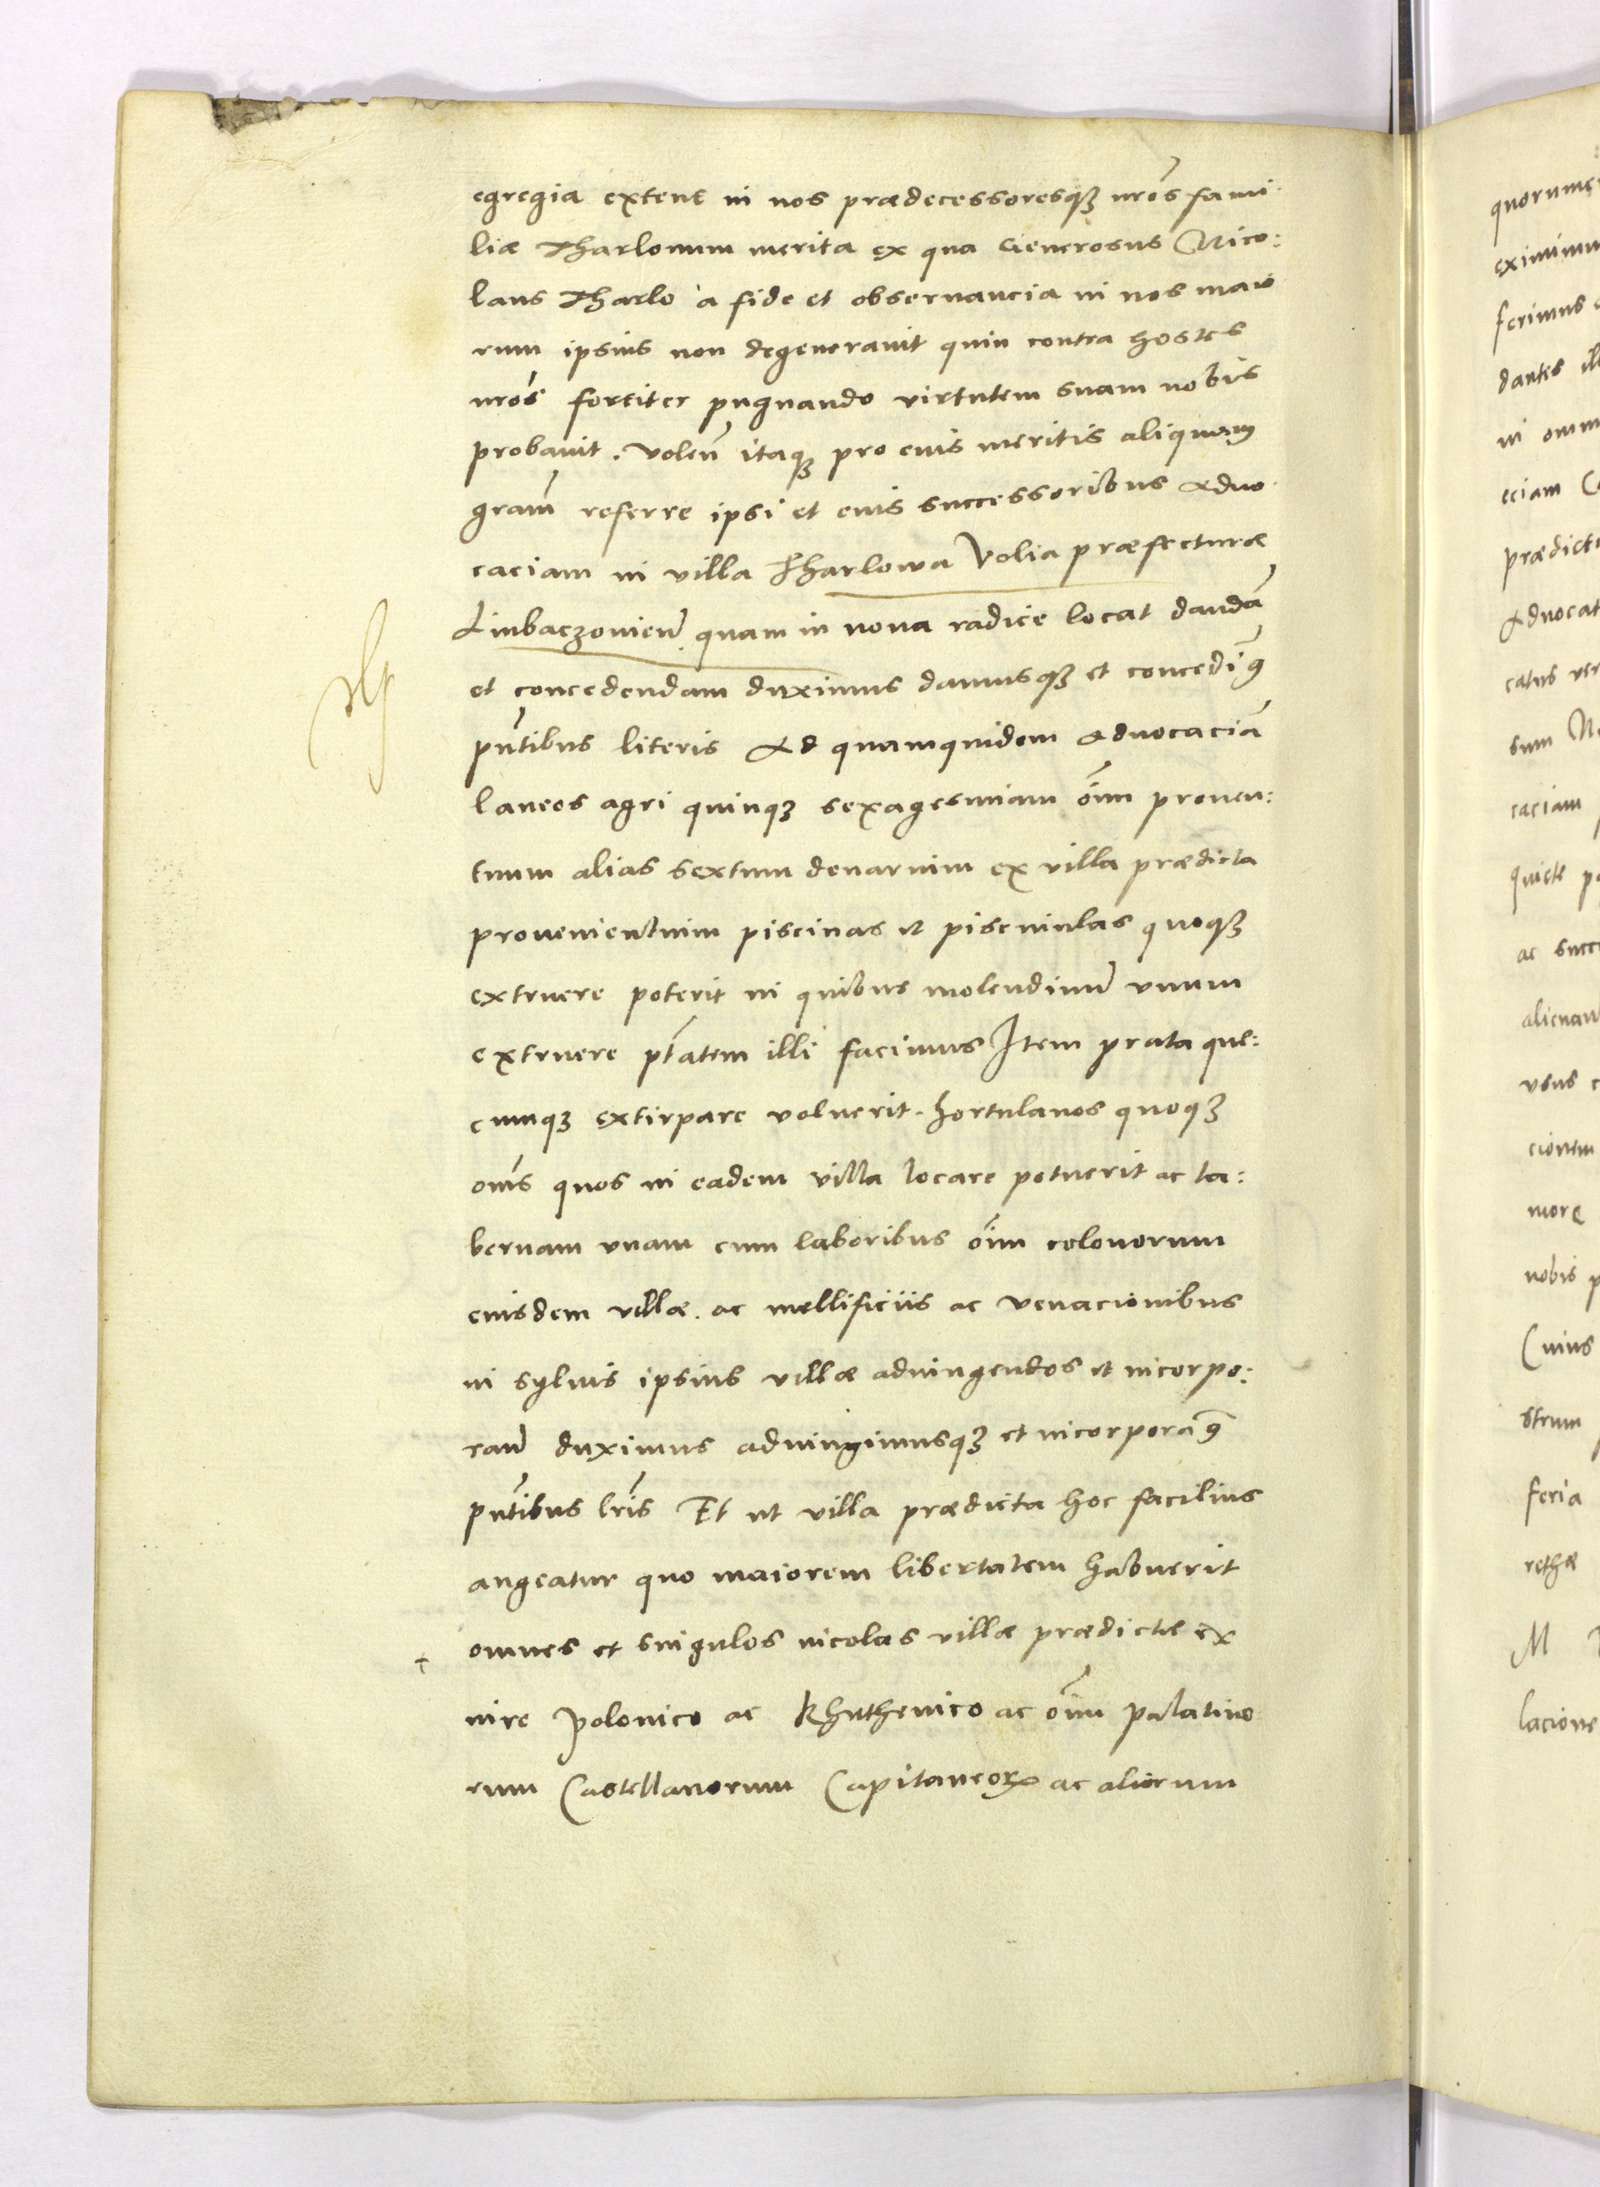 egregia extent in nos prædecessoresqꝫ nr̃os fami-
liæ Tharlonum merita ex qua Generosus Nico:
laus Tharlo a fide et observancia in nos maio
rum ipsius non degeneravit quin contra hostes
nr̃os fortiter pugnando virtutem suam nobis
probavit. Volen̄ itaqꝫ pro eius meritis aliquam
gram̄ referre ipsi et eius successoribus Advo
caciam in villa Tharlowa Volia præfecturæ
Liubaczovien̄ quam in nova radice locat dandā
et concedendam duximus damusqꝫ et concedimꝰ
pñtibus literis Ad quamquidem advocaciā
laneos agri quinqꝫ sexagesimam oīm proven:
tuum alias sextum denarium ex villa prædicta
provenientium piscinas et pisciculas quoqꝫ
extruere poterit in quibus molendinum̄ unum
extruere ptātem illi facimus Item prata que:
cumqꝫ extirpare voluerit. hortulanos quoqꝫ
om̄s quos in eadem villa locare potuerit ac ta:
bernam unam cum laboribus oīm colonorum
eiusdem villæ. ac mellificiis ac venacionibus
in sylvis ipsius villæ adiungendos et incorpo:
ran̄ duximus adiungimusqꝫ et incorporamꝰ
pñtibus lr̃is Et ut villa prædicta hoc facilius
augeatur quo maiorem libertatem habuerit
omnes et singulos incolas villæ prædictæ ex
iure Polonico ac Rhuthenico ac oīm palatino
rum Castellanorum Capitaneorꝝ ac aliorum
quorumcu
eximimu
ferimus
dantes ill
in omn
eciam
prædict
Advocat
catus ver
sum
caciam
quiete p
ac succ
alienan
usus
cionem
more
nobis p
Cuius
strum
feria
rethæ
M
lacione